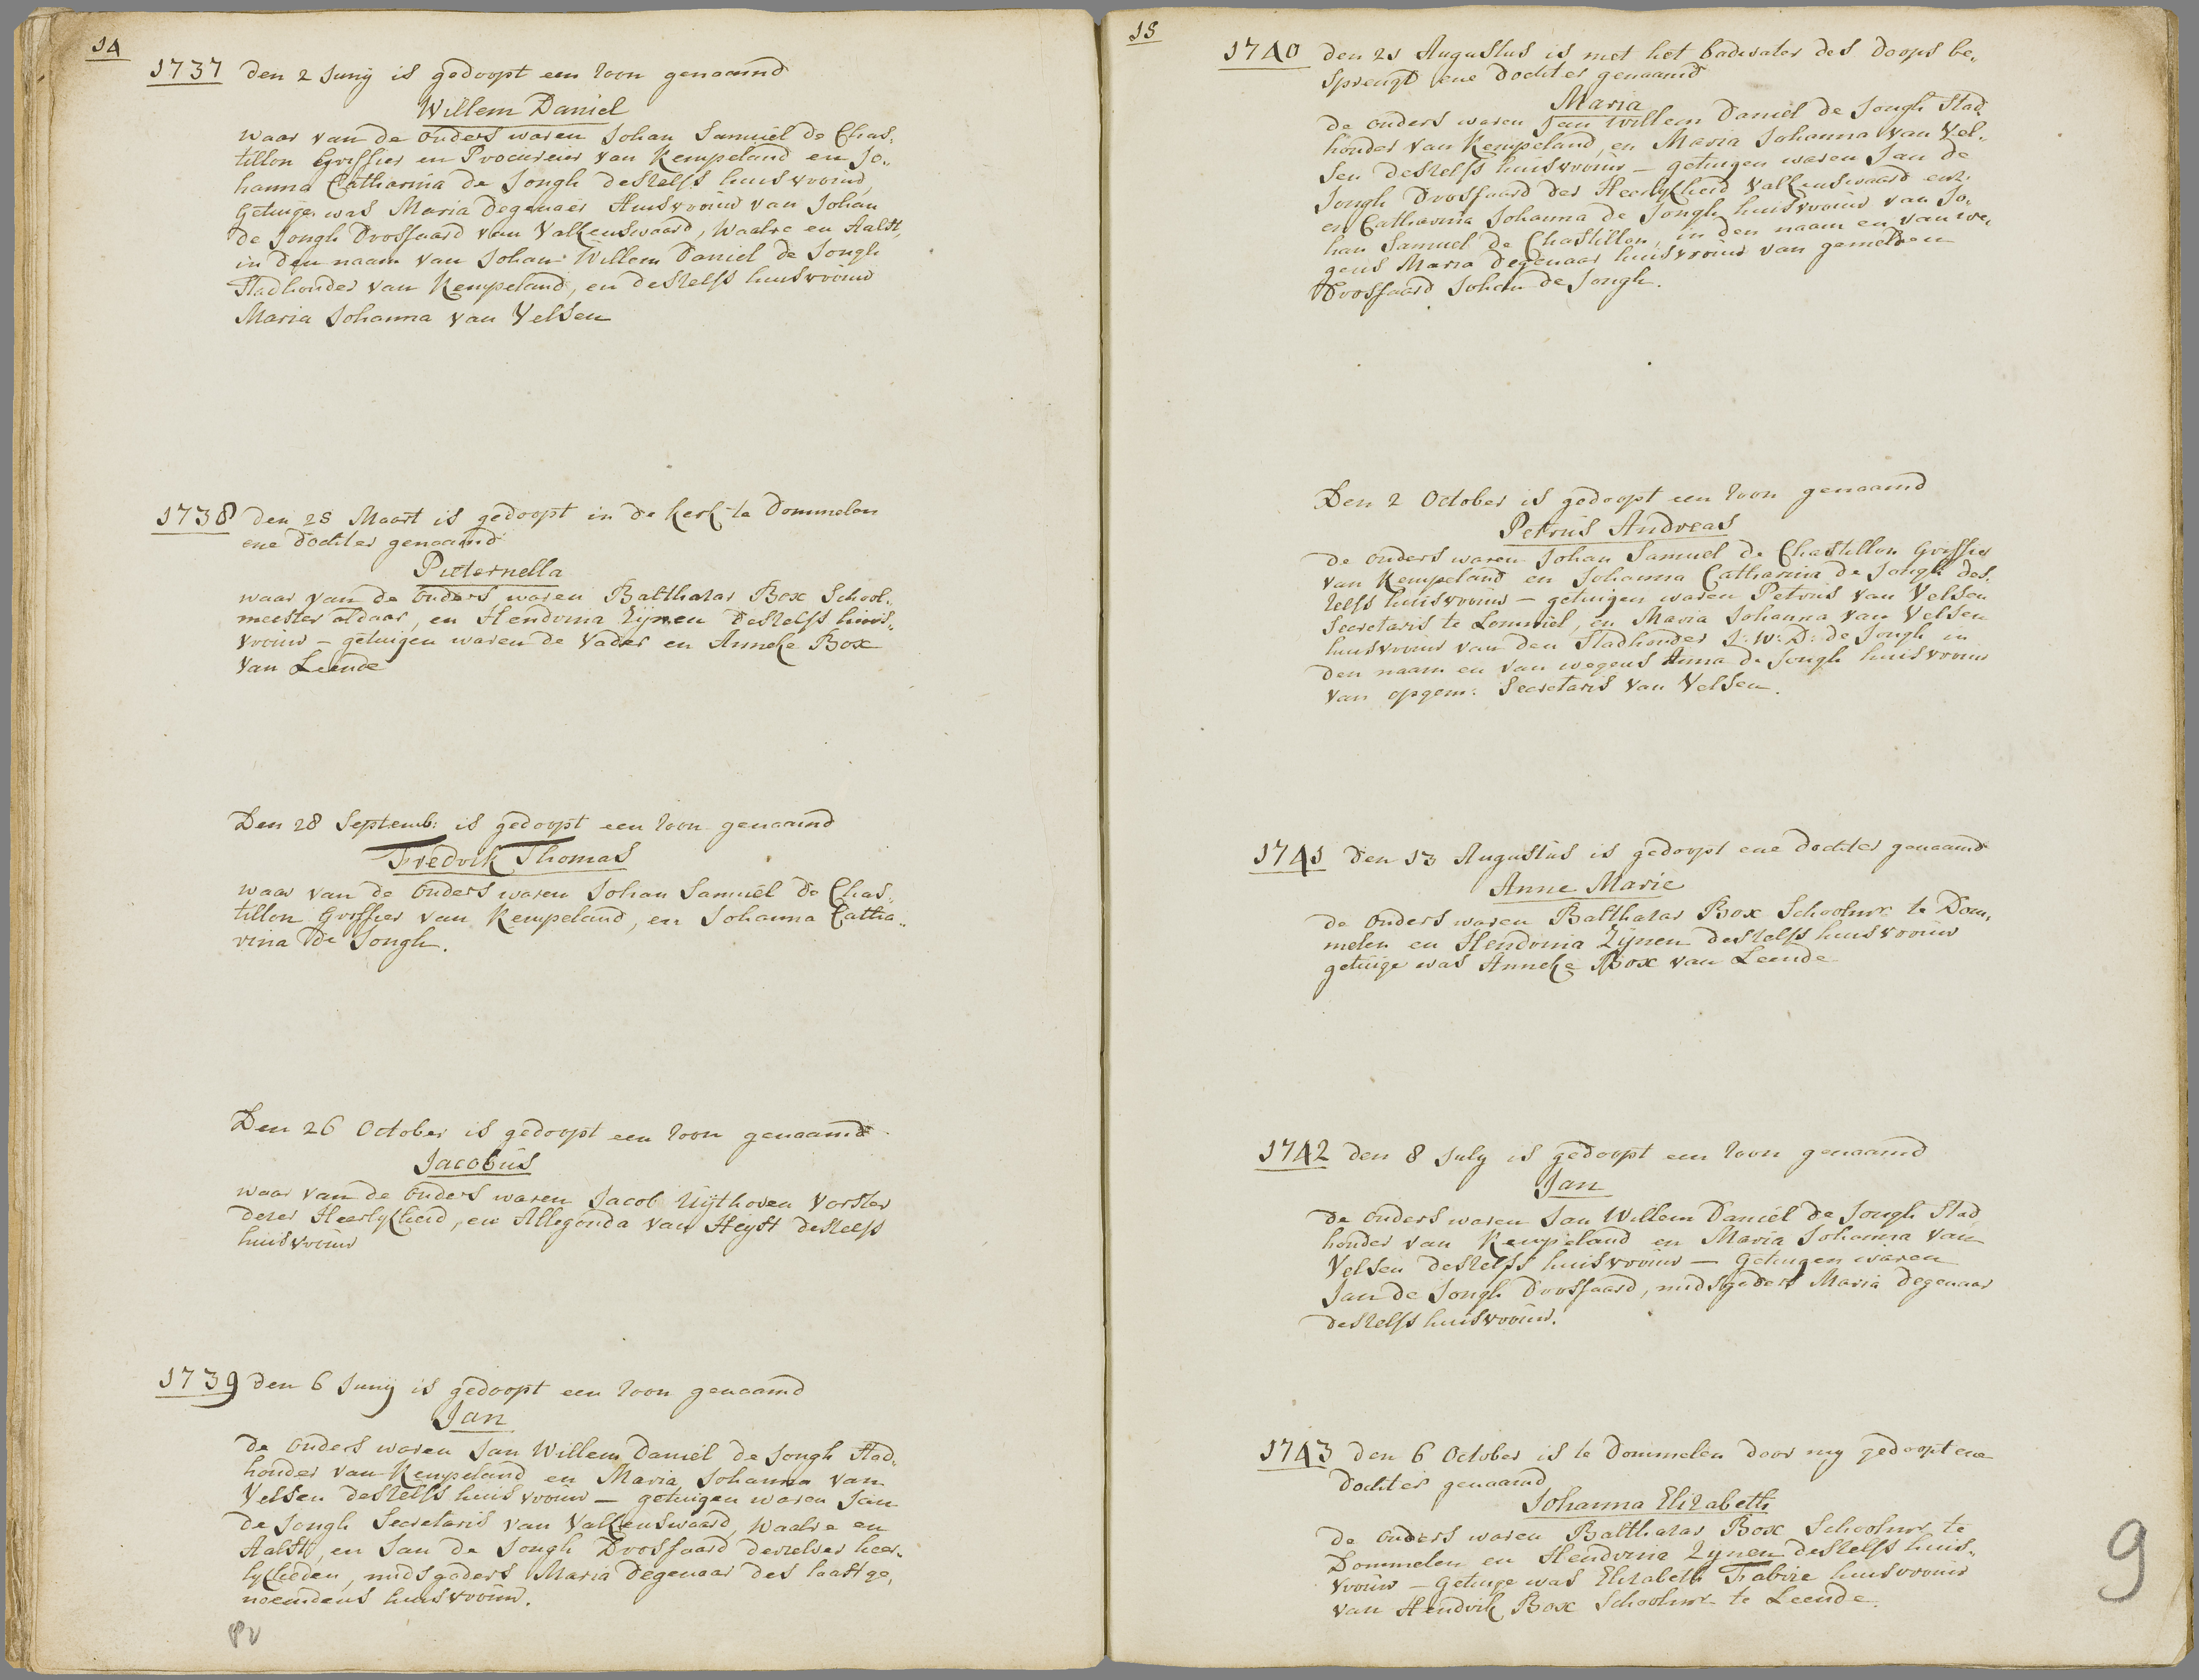 14
1737 den 2 Junij is gedoopt een zoon genaamd
Willem Daniel
waar van de ouders waren Johan Samuël de Chas„
tillon Griffier en Procureur van Kempeland en Jo„
hanna Catharina de Jongh deszelfs huisvrouw,
Getuige was Maria Degenaer Huisvrouw van Johan
de Jongh Drossaard van Valkenswaard, Waalre en Aalst,
in den naam van Johan Willem Daniel de Jongh
Stadhouder van Kempeland, en deszelfs huisvrouw
Maria Johanna van Velsen
1738 den 28 Maart is gedoopt in de kerk te Dommelen
ene Dochter genaamd
Pieternella
waar van de ouders waren Balthazar Box School„
meester aldaar, en Hendrina Zijnen deszelfs huis„
vrouw – getuigen waren de Vader en Anneke Box
van Leende
Den 28 Septemb: is gedoopt een zoon genaamd
Fredrik Thomas
waar van de ouders waren Johan Samuël de Chas„
tillon Griffier van Kempeland, en Johanna Catha„
rina de Jongh.
Den 26 October is gedoopt een zoon genaamd
Jacobus
waar van de ouders waren Jacob Uijthoven Vorster
dezer Heerlykheid, en Allegonda van Heyst deszelfs
huisvrouw
1739 den 6 Junij is gedoopt een zoon genaamd
Jan
de ouders waren Jan Willem Daniël de Jongh Stad„
houder van Kempeland en Maria Johanna van
Velsen deszelfs huisvrouw – getuigen waren Jan
de Jongh Secretaris van Valkenswaard, Waalre en
Aalst, en Jan de Jongh Drossaard derzelver heer„
lykheden, midsgaders Maria Degenaar des laastge„
noemdens huisvrouw.
15
1740 den 21 Augustus is met het badwater des doops be„
sprengd ene Dochter genaamd
Maria
de ouders waren Jan Willem Daniël de Jongh Stad„
houder van Kempeland, en Maria Johanna van Vel„
sen deszelfs huisvrouw – getuigen waren Jan de
Jongh Drossaard der Heerlykheid Valkenswaard enz.
en Catharina Johanna de Jongh huisvrouw van Jo„
han Samuel de Chastillon, in den naam en van we„
gens Maria Degenaar huisvrouw van gemelden
Drossaard Johan de Jongh.
Den 2 October is gedoopt een zoon genaamd
Petrus Andreas
de ouders waren Johan Samuel de Chastillon Griffier
van Kempeland en Johanna Catharina de Jongh des„
zelfs huisvrouw – getuigen waren Petrus van Velsen
Secretaris te Lommel, en Maria Johanna van Velsen
huisvrouw van den Stadhouder J: W: D: de Jongh in
den naam en van wegens Anna de Jongh huisvrouw
van opgem: Secretaris van Velsen.
1741 den 13 Augustus is gedoopt ene dochter genaamd
Anne Marie
de ouders waren Balthazar Box Schoolmr te Dom„
melen en Hendrina Zijnen deszelfs huisvrouw
getuige was Anneke Box van Leende
1742 den 8 July is gedoopt een zoon genaamd
Jan
de ouders waren Jan Willem Daniël de Jongh Stad„
houder van Kempeland en Maria Johanna van
Velsen deszelfs huisvrouw – Getuigen waren
Jan de Jongh Drossaard, midsgaders Maria Degenaar
deszelfs huisvrouw.
1743 den 6 October is te Dommelen door my gedoopt ene
Dochter genaamd
Johanna Elizabeth
de ouders waren Balthazar Box Schoolmr te
Dommelen en Hendrina Zynen deszelfs huis„
vrouw – Getuige was Elizabeth Fabrie huisvrouw
van Hendrik Box Schoolmr te Leende.
9